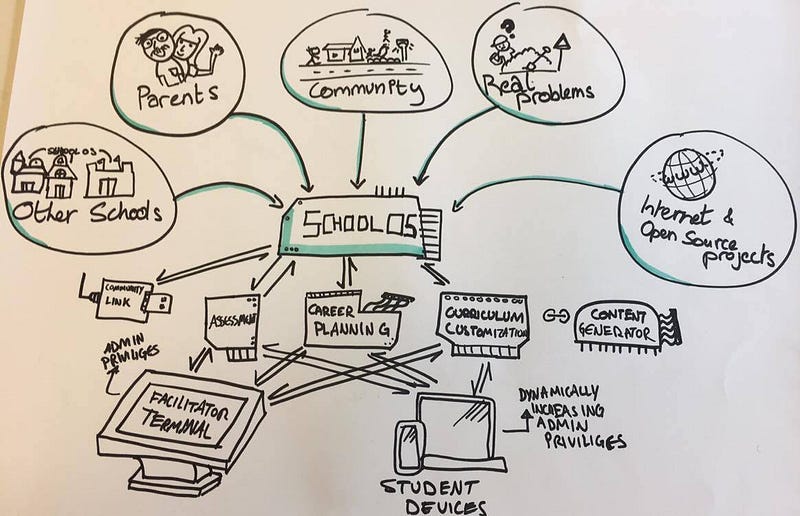 Parents
Community
Real
Problems
SCHOOL OS
Other Schools
WWW
Internet &
Open Source
projects
SCHOOL OS
COMMUNITY
LINK
ASSESSMENT
CAREER
PLANNING
CURRICULUM
CUSTOMIZATION
CONTENT
GENERATOR
ADMIN
PRIVILIGES
FACILITATOR
TERMINAL
DYNAMICALLY
INCREASING
ADMIN
PRIVILIGES
STUDENT
DEVICES